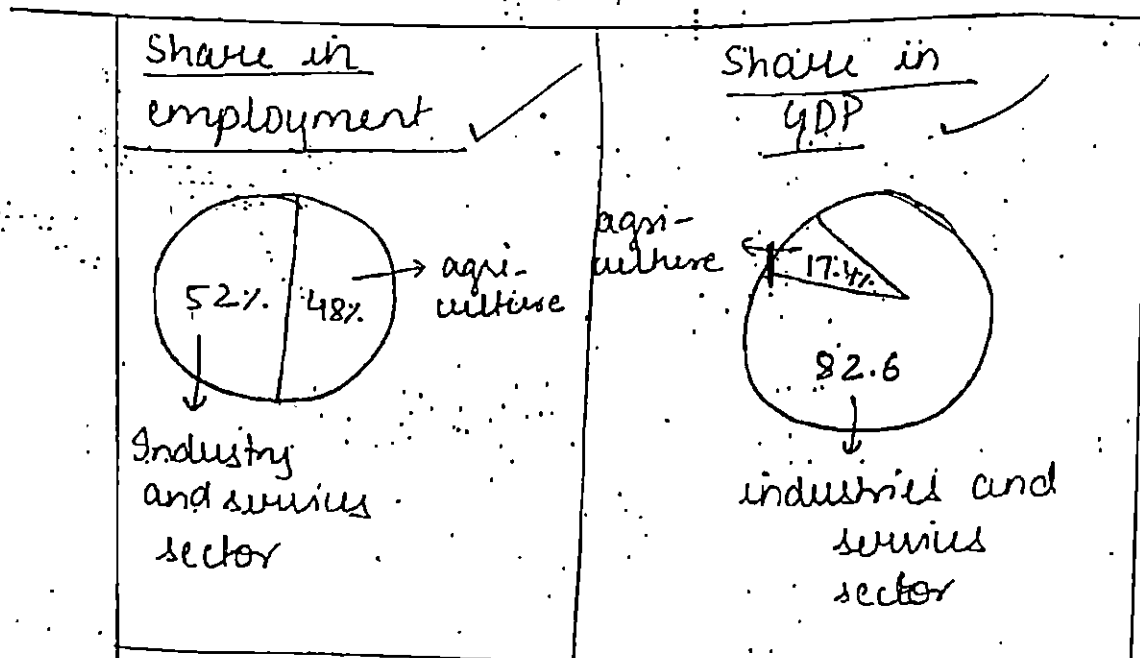 Share in
employment
52%.
48%.
agri-
culture
Industry
and services
sector
Share in
GDP
agri-
culture
17.4%
82.6
industries and
services
sector